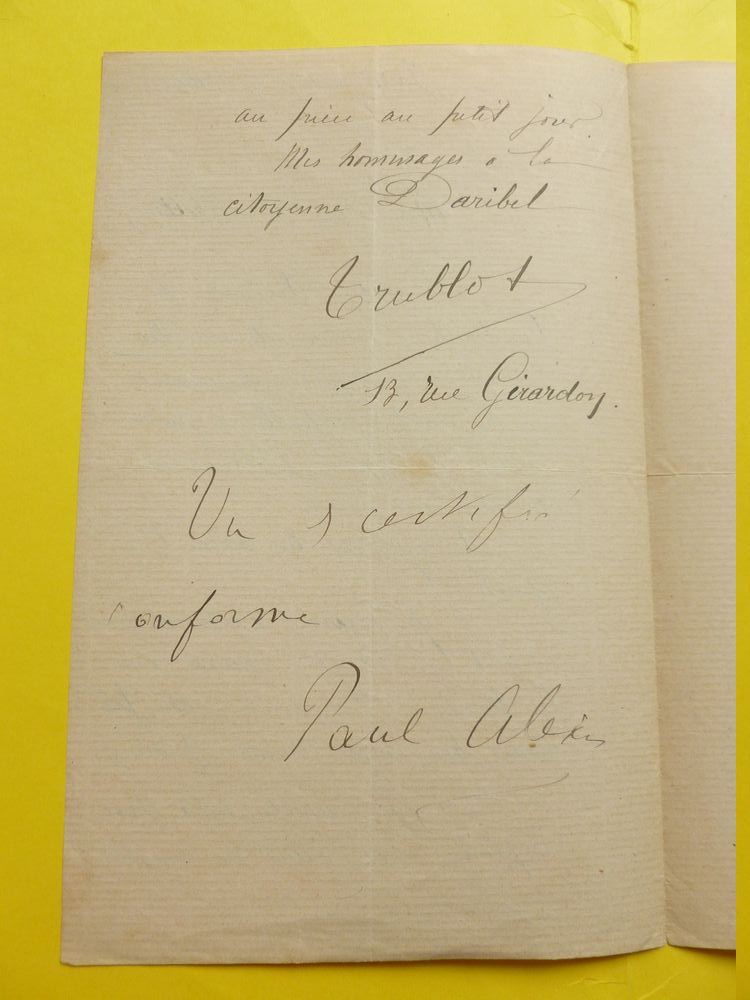 au au petit jour.
Mes hommages à la
citoyenne Daribel
Trublot
13, rue Girardon.
Vu & certifié
conforme
Paul Alexis